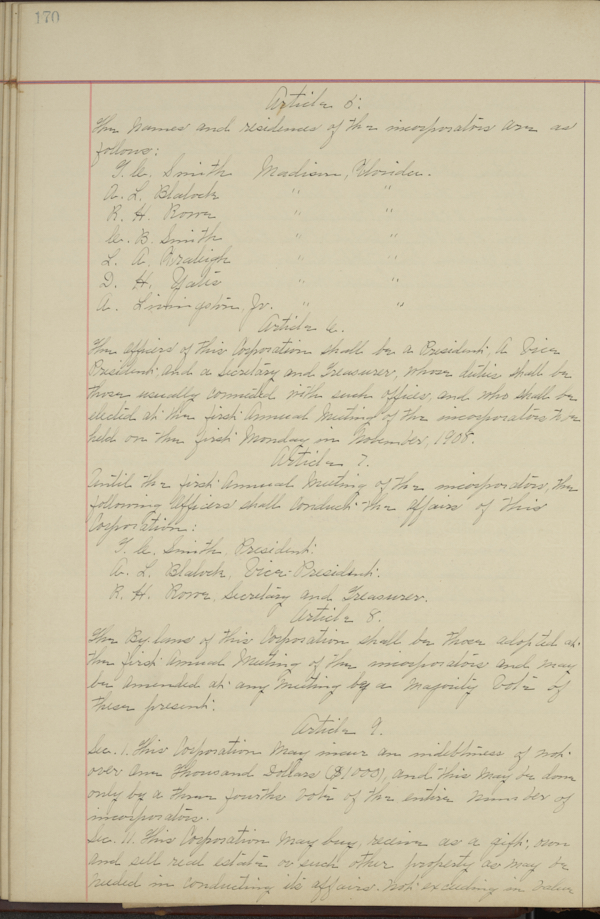 170
Article 5.
The names and residences of the incorporators are as
follows:
T. C. Smith Madison, Florida.
A. L. Blalock " "
R. H. Rowe " "
C. B. Smith " "
L. A. Fraleigh " "
D. H. Yates " "
A. Livingston, Jr. " "
Article 6.
The officers of this Corporation shall be a President, a Vice
President and a Secretary and Treasurer, whose duties shall be
those usually connected with such offices, and who shall be
elected at the first Annual Meeting of the incorporators to be
held on the first Monday in November, 1908.
Article 7.
Until the first Annual Meeting of the incorporators, the
following Officers shall conduct the affairs of this
Corporation:
T. C. Smith, President.
A. L. Blalock, Vice-President.
R. H. Rowe, Secretary and Treasurer.
Article 8.
The By-laws of this Corporation shall be those adopted at
the first Annual Meeting of the incorporators and may
be amended at any meeting by a majority vote of
those present.
Article 9.
Sec. 1. This Corporation may incur an indebtness of not
over One Thousand Dollars ($1000), and this may be done
only by a three fourths vote of the entire number of
incorporators.
Sec. 11. This Corporation may buy, receive as a gift, own
and sell real estate or such other property as may be
needed in conducting its affairs. Not exceeding in value